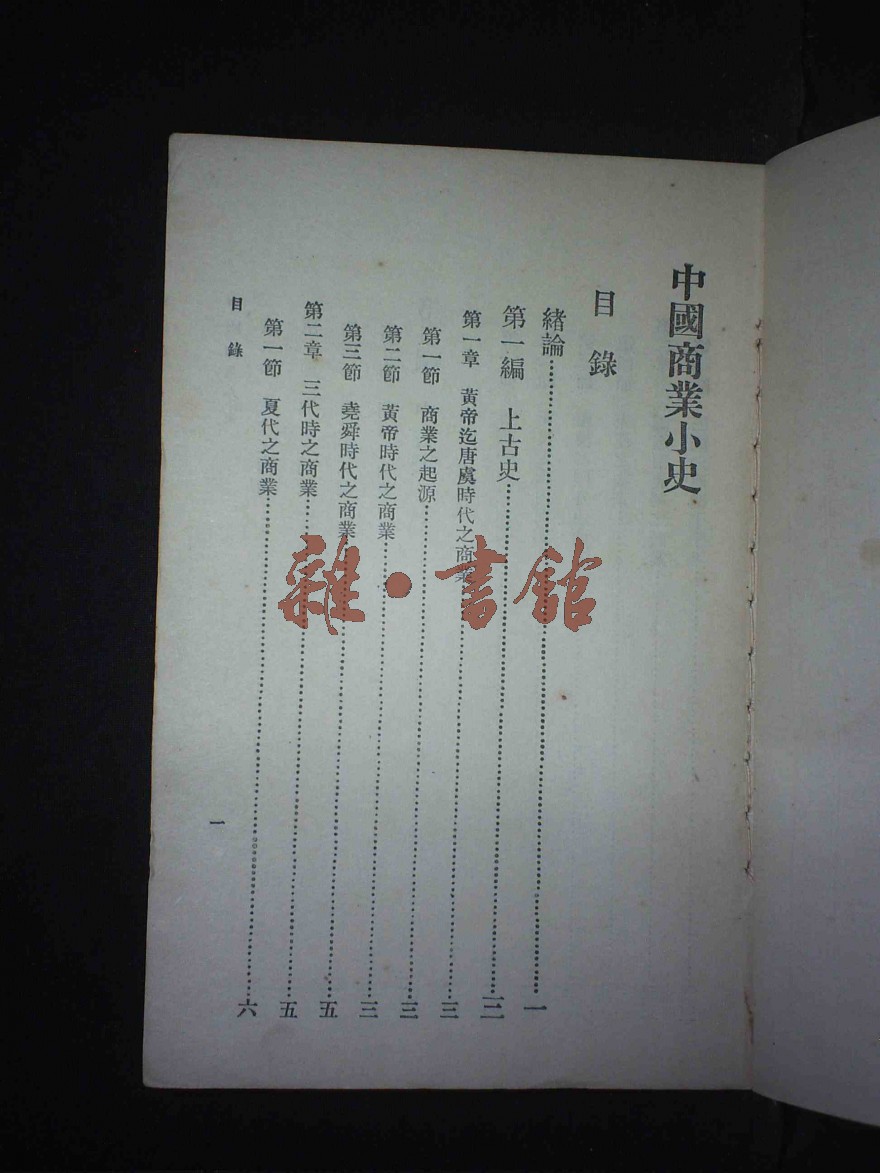 中國商業小史
目錄
緒論……一
第一編 上古史……三
第一章 黃帝迄唐虞時代之商業……三
第一節 商業之起源……三
第二節 黃帝時代之商業……三
第三節 堯舜時代之商業……五
第二章 三代時之商業……五
第一節 夏代之商業……六
目錄
一
雜·書館